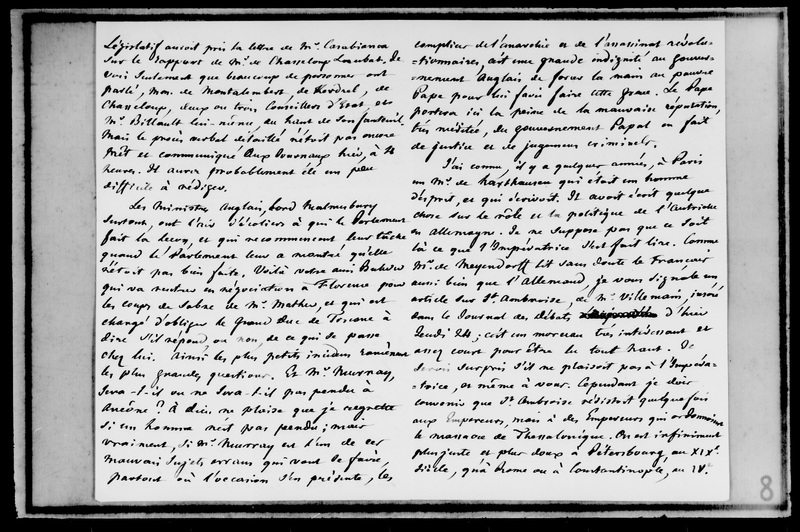 Législatif aurait pris la lettre de Mr. Casabianca
sur le rapport de Mr. de Chasseloup Laubat. Je
vois seulement que beaucoup de personnes ont
parlé, Mm. de Montalembert, de Kerdrel, de
Chasseloup, deux ou trois Conseillers d'Etat, et
Mr. Billault lui-même, du haut de son fauteuil.
Mais le procès verbal détaillé n'était pas encore
prêt et communiqué aux Journaux hier, à 4
heures. Il aura probablement été un peu
difficile à rédiger.
Les Ministres Anglais, Lord Malmesbury
surtout, ont l'air d'écoliers à qui le Parlement
fait la leçon, et qui recommencent leur tâche
quand le Parlement leur a montré qu'elle
n'était pas bien faite. Voilà votre ami Bulwer
qui va rentrer en négociation à Florence pour
les coups de sabre de Mr. Mather, et qui est
chargé d'obliger le Grand Duc de Toscane à
dire s'il répond, ou non, de ce qui se passe
chez lui. Ainsi les plus petits incidens ramènent
les plus grandes questions. Et Mr. Murray,
sera-t-il ou ne sera-t-il pas pendu à
Ancône ? A Dieu ne plaise que je regrette
si un homme n'est pas pendu ; mais
vraiment, si Mr. Murray est l'un de ces
mauvais sujets errans qui vont se faire,
partout où l'occasion s'en présente, les
complices de l'anarchie et de l'assassinat révolu-
-tionnaires, c'est une grande indignité au gouver-
-nement Anglais de forcer la main au pauvre
Pape pour lui faire faire cette grâce. Le Pape
portera ici la peine de la mauvaise réputation,
très méritée, du gouvernement Papal en fait
de justice et de jugemens criminels.
J'ai connu, il y a quelques années, à Paris
un Mr. de Haxthausen qui était un homme
d'esprit, et qui écrivait. Il avait écrit quelque
chose sur le rôle et la politique de l'Autriche
en Allemagne. Je ne suppose pas que ce soit
là ce que l'Impératrice s'est fait lire. Comme
Mr. de Meyendorff lit sans doute le Français
aussi bien que l'Allemand, je vous signale un
article sur St. Ambroise, de Mr. Villemain, inséré
dans le Journal des Débats d'hier
Jeudi 24 ; c'est un morceau très intéressant et
assez court pour être lu tout haut. Je
serais surpris s'il ne plaisait pas à l'Impéra-
-trice, et même à vous. Cependant je dois
convenir que St. Ambroise résistait quelquefois
aux Empereurs, mais à des Empereurs qui ordonnaient
le massacre de Thessalonique. On est infiniment
plus juste et plus doux à Pétersbourg, au XIXe.
siècle, qu'à Rome ou à Constantinople, au IVe.
8